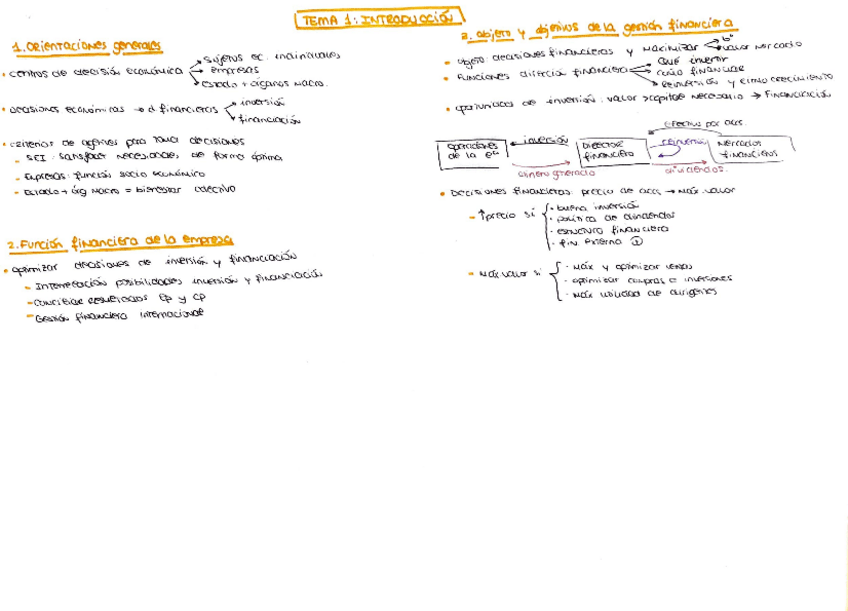 TEMA 1: INTRODUCCIÓN
1. Orientaciones generales
• centros de decisión económica → sujetos ec. individuales
→ empresas
→ estado + órganos macro.
• decisiones económicas → d financieras → inversión
→ financiación
• criterios de agentes para tomar decisiones
- SEI: satisfacer necesidades, de forma óptima
- Empresas: función socio económico
- Estado + órg macro = bienestar colectivo
2. Función financiera de la empresa
• optimizar decisiones de inversión y financiación
- Interrelación posibilidades inversión y financiación
- Conciliar resultados lp y cp
- Gestión financiera internacional
2. Objeto y objetivos de la gestión financiera
• objeto: decisiones financieras y maximizar → bº
→ valor mercado
• Funciones dirección financiera → Qué invertir
→ cómo financiar
→ Reinversión y ritmo crecimiento
• oportunidades de inversión: valor > capital necesario → Financiación
efectivo por accs.
operaciones de la eª
inversión
Director financiero
reinversión
Mercados financieros
dinero generado
dividendos.
• Decisiones financieras: precio de accs → máx. valor
- ↑ precio si { · buena inversión
· política de dividendos
· estructura financiera
· fin. externa ①
- Máx valor si { · Máx y optimizar ventas
· optimizar compras e inversiones
· Máx utilidad de dirigentes